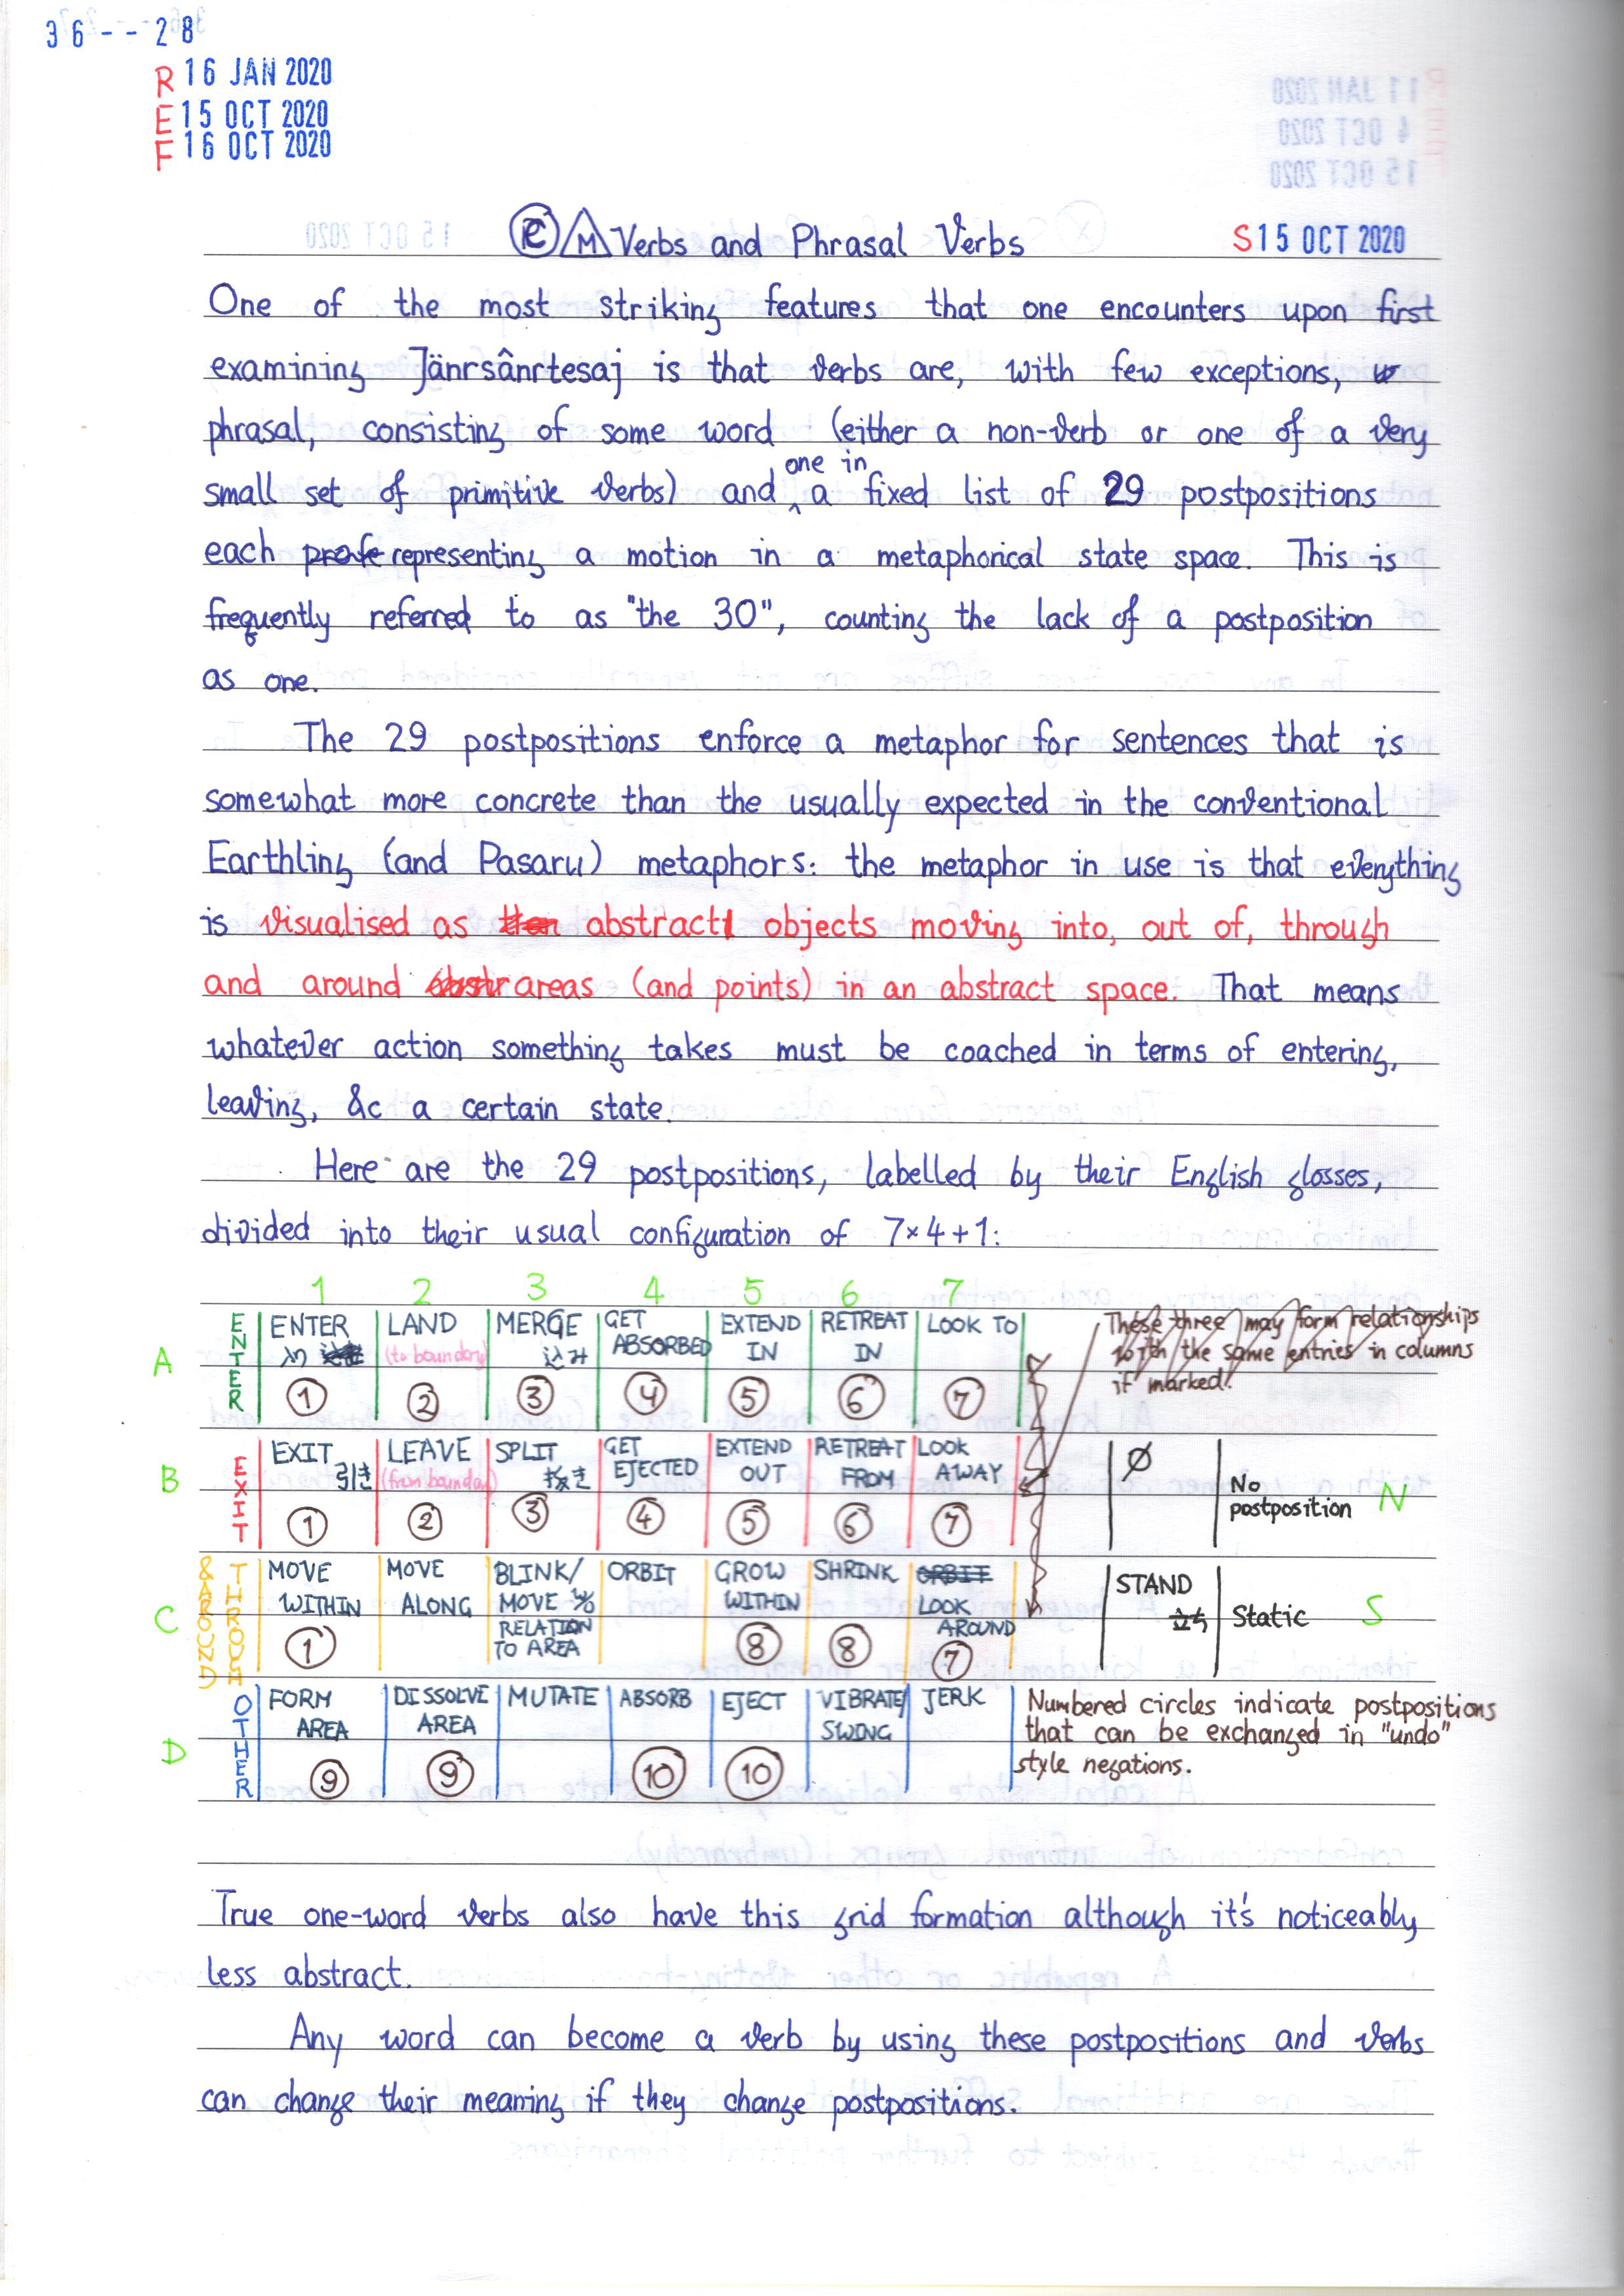 36--28
R 16 JAN 2020
E 15 OCT 2020
F 16 OCT 2020
Verbs and Phrasal Verbs
S 15 OCT 2020
One of the most striking features that one encounters upon first
examining Jänrsânrtesaj is that verbs are, with few exceptions,
phrasal, consisting of some word (either a non-verb or one of a very
small set of primitive verbs) and one in a fixed list of 29 postpositions
each representing a motion in a metaphorical state space. This is
frequently referred to as "the 30", counting the lack of a postposition
as one.
The 29 postpositions enforce a metaphor for sentences that is
somewhat more concrete than the usually expected in the conventional
Earthling (and Pasaru) metaphors: the metaphor in use is that everything
is visualised as abstract objects moving into, out of, through
and around areas (and points) in an abstract space. That means
whatever action something takes must be coached in terms of entering,
leaving, &c a certain state.
Here are the 29 postpositions, labelled by their English glosses,
divided into their usual configuration of 7×4+1:
1 2 3 4 5 6 7
A
ENTER
ENTER 入り
①
LAND (to boundary)
②
MERGE 込み
③
GET ABSORBED
④
EXTEND IN
⑤
RETREAT IN
⑥
LOOK TO
⑦
These three may form relationships
with the same entries in columns
if marked!
B
EXIT
EXIT 引き
①
LEAVE (from boundary)
②
SPLIT 抜き
③
GET EJECTED
④
EXTEND OUT
⑤
RETREAT FROM
⑥
LOOK AWAY
⑦
Ø
No postposition
N
C
THROUGH
& AROUND
MOVE WITHIN
①
MOVE ALONG
BLINK/
MOVE w/o
RELATION
TO AREA
ORBIT
GROW WITHIN
⑧
SHRINK
⑧
ORBIT
LOOK AROUND
⑦
STAND 立ち
Static
S
D
OTHER
FORM AREA
⑨
DISSOLVE AREA
⑨
MUTATE
ABSORB
⑩
EJECT
⑩
VIBRATE/
SWING
JERK
Numbered circles indicate postpositions
that can be exchanged in "undo"
style negations.
True one-word verbs also have this grid formation although it's noticeably
less abstract.
Any word can become a verb by using these postpositions and verbs
can change their meaning if they change postpositions.